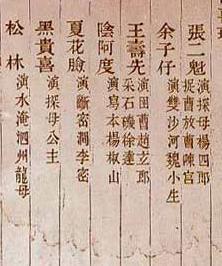 張二魁
演探母楊四郎
捉曹放曹陳宮
余子仔
演雙沙河魏小生
王壽先
演田曹趙玄郎
采石磯徐達
陰阿度
演寫本楊椒山
夏花臉
演斷密澗李密
黑貴喜
演探母公主
松林
演水淹泗州龍母